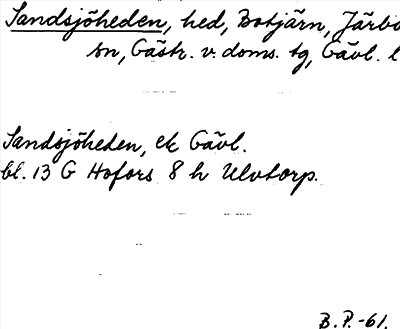 Sandsjöheden, hed, Botjärn, Järbo
sn, Gästr. v. doms. tg, Gävl. l
Sandsjöheden, ek Gävl.
bl. 13 G Hofors 8 h Ulvtorp.
B.P.-61.